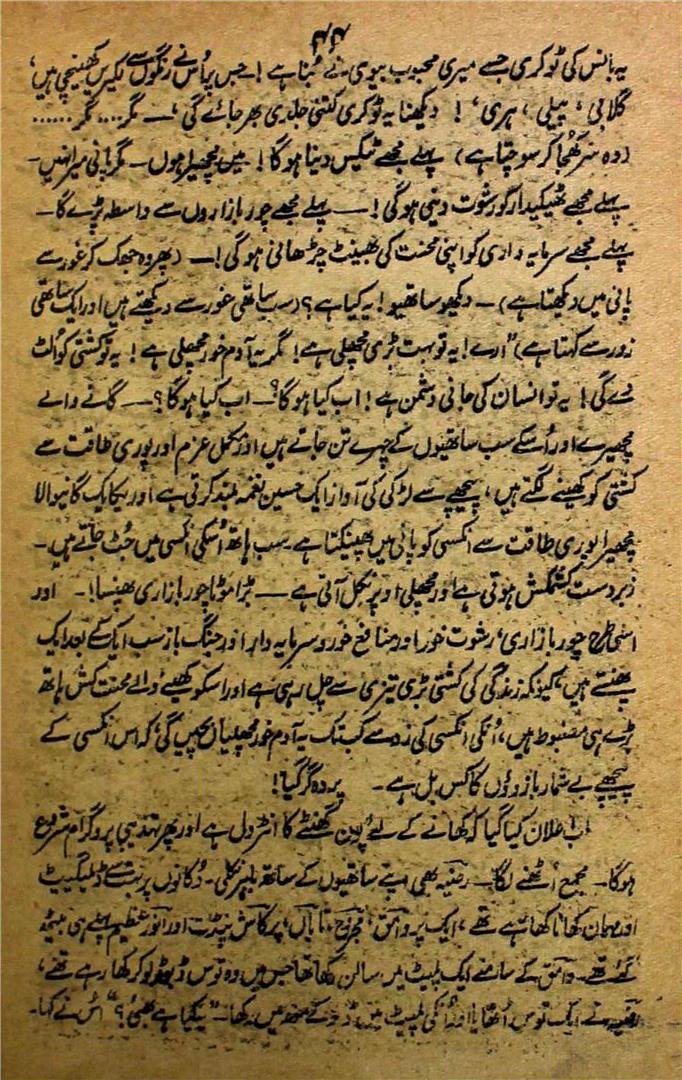 ۴۴
یہ بانس کی ٹوکری جسے میری محبوب بیوی نے بُنا ہے! جس پر اُس نے رنگوں سے لکیریں کھینچی ہیں،
گلابی، پیلی، ہری،! دیکھنا یہ ٹوکری کتنی جلدی بھر جائے گی،۔ مگر.... مگر......
(وہ سر کھُجا کر سوچتا ہے) پہلے مجھے ٹیکس دینا ہوگا! میں مچھیرا ہوں۔ مگر پانی میرا نہیں۔
پہلے مجھے ٹھیکیدار کو رشوت دینی ہوگی!— پہلے مجھے چور بازاروں سے واسطہ پڑے گا۔
پہلے مجھے سرمایہ داری کو اپنی محنت کی بھینٹ چڑھانی ہوگی!— (پھر وہ جھک کر غور سے
پانی میں دیکھتا ہے)— دیکھو ساتھیو! یہ کیا ہے؟ (سب ساتھی غور سے دیکھتے ہیں اور ایک ساتھی
زور سے کہتا ہے) "ارے! یہ تو بہت بڑی مچھلی ہے! مگر یہ آدم خور مچھلی ہے! یہ تو کشتی کو اُلٹ
دے گی! یہ تو انسان کی جانی دشمن ہے! اب کیا ہوگا؟— اب کیا ہوگا؟— گانے والے
مچھیرے اور اُسکے سب ساتھیوں کے چہرے تن جاتے ہیں اور مکمل عزم اور پوری طاقت سے
کشتی کو کھینے لگتے ہیں، پیچھے سے لڑکی کی آواز ایک حسین نغمہ بلند کرتی ہے اور یکایک گانیوالا
مچھیرا پوری طاقت سے انکسی کو پانی میں پھینکتا ہے۔ سب ہاتھ اُسکی انکسی میں جُٹ جاتے ہیں۔
زبردست کشمکش ہوتی ہے اور مچھلی اوپر نکل آتی ہے— بڑا موٹا چور بازاری پھنسا!۔ اور
اسی طرح چور بازاری، رشوت خور اور منافع خور و سرمایہ دار اور جنگ باز سب ایک کے بعد ایک
پھنستے ہیں، کیونکہ زندگی کی کشتی بڑی تیزی سے چل رہی ہے اور اسکو کھینے والے محنت کش ہاتھ
بڑے ہی مضبوط ہیں، اُنکی انکسی کی زد سے کب تک یہ آدم خور مچھلیاں بچیں گی، کہ اس انکسی کے
پیچھے بے شمار بازوؤں کا کس بل ہے۔ پردہ گر گیا!
اب اعلان کیا گیا کہ کھانے کے لئے پون گھنٹے کا انٹرول ہے اور پھر تہذیبی پروگرام شروع
ہوگا۔ مجمع اُٹھنے لگا— رضیہ بھی اپنے ساتھیوں کے ساتھ باہر نکلی۔ دُکانوں پر بہت سے ڈیلیگیٹ
اور مہمان کھانا کھا رہے تھے، ایک پر وامق، مجروح، تاباں، پرکاش پنڈت اور انور عظیم پہلے ہی بیٹھ
گئے تھے۔ وامق کے سامنے ایک پلیٹ میں سالن رکھا تھا جس میں وہ توس ڈبو ڈبو کر کھا رہے تھے،
رضیہ نے ایک توس اُٹھایا اور اُنکی پلیٹ میں ڈبو کے منھ میں رکھا۔ "یہ کیا ہے بھئی؟" اُس نے کہا۔